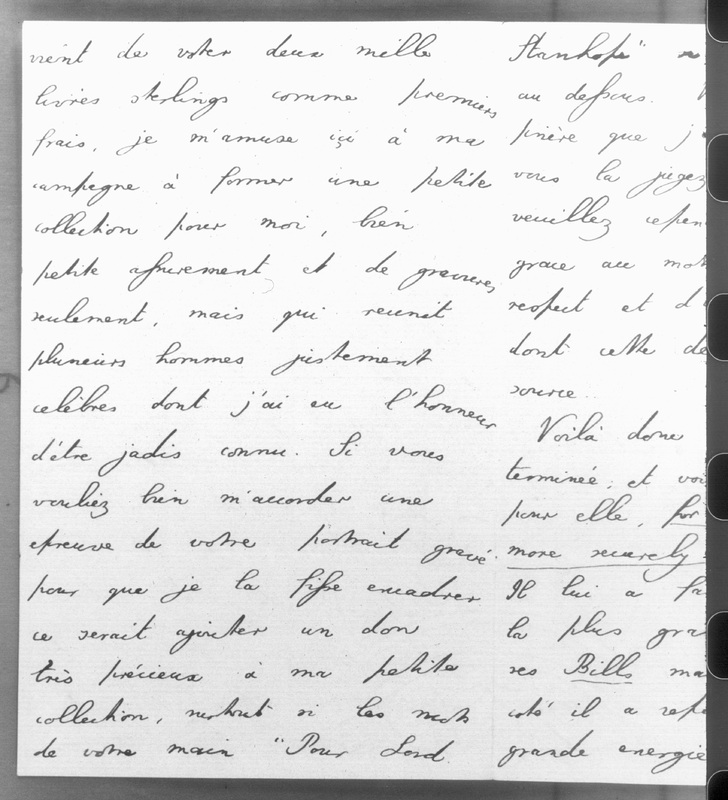 vient de voter deux mille
livres sterlings comme premiers
frais, je m'amuse içi à ma
campagne à former une petite
collection pour moi, bien
petite assurement, et de gravures
seulement, mais qui reunit
plusieurs hommes justement
celèbres dont j'ai eu l'honneur
d'être jadis connu. Si vous
vouliez bien m'accorder une
epreuve de votre portrait gravé
pour que je la fisse encadrer
ce serait ajouter un don
très précieux à ma petite
collection, surtout si les mots
de votre main "Pour Lord
Stanhope"
au dessous.
prière que j
vous la jugez
veuillez cepen
grace au mot
respect et d'
dont cette de
source.
Voilà donc
terminée; et voi
pour elle, for
more securely
Il lui a fa
la plus gra
ses Bills ma
coté il a
grande energie